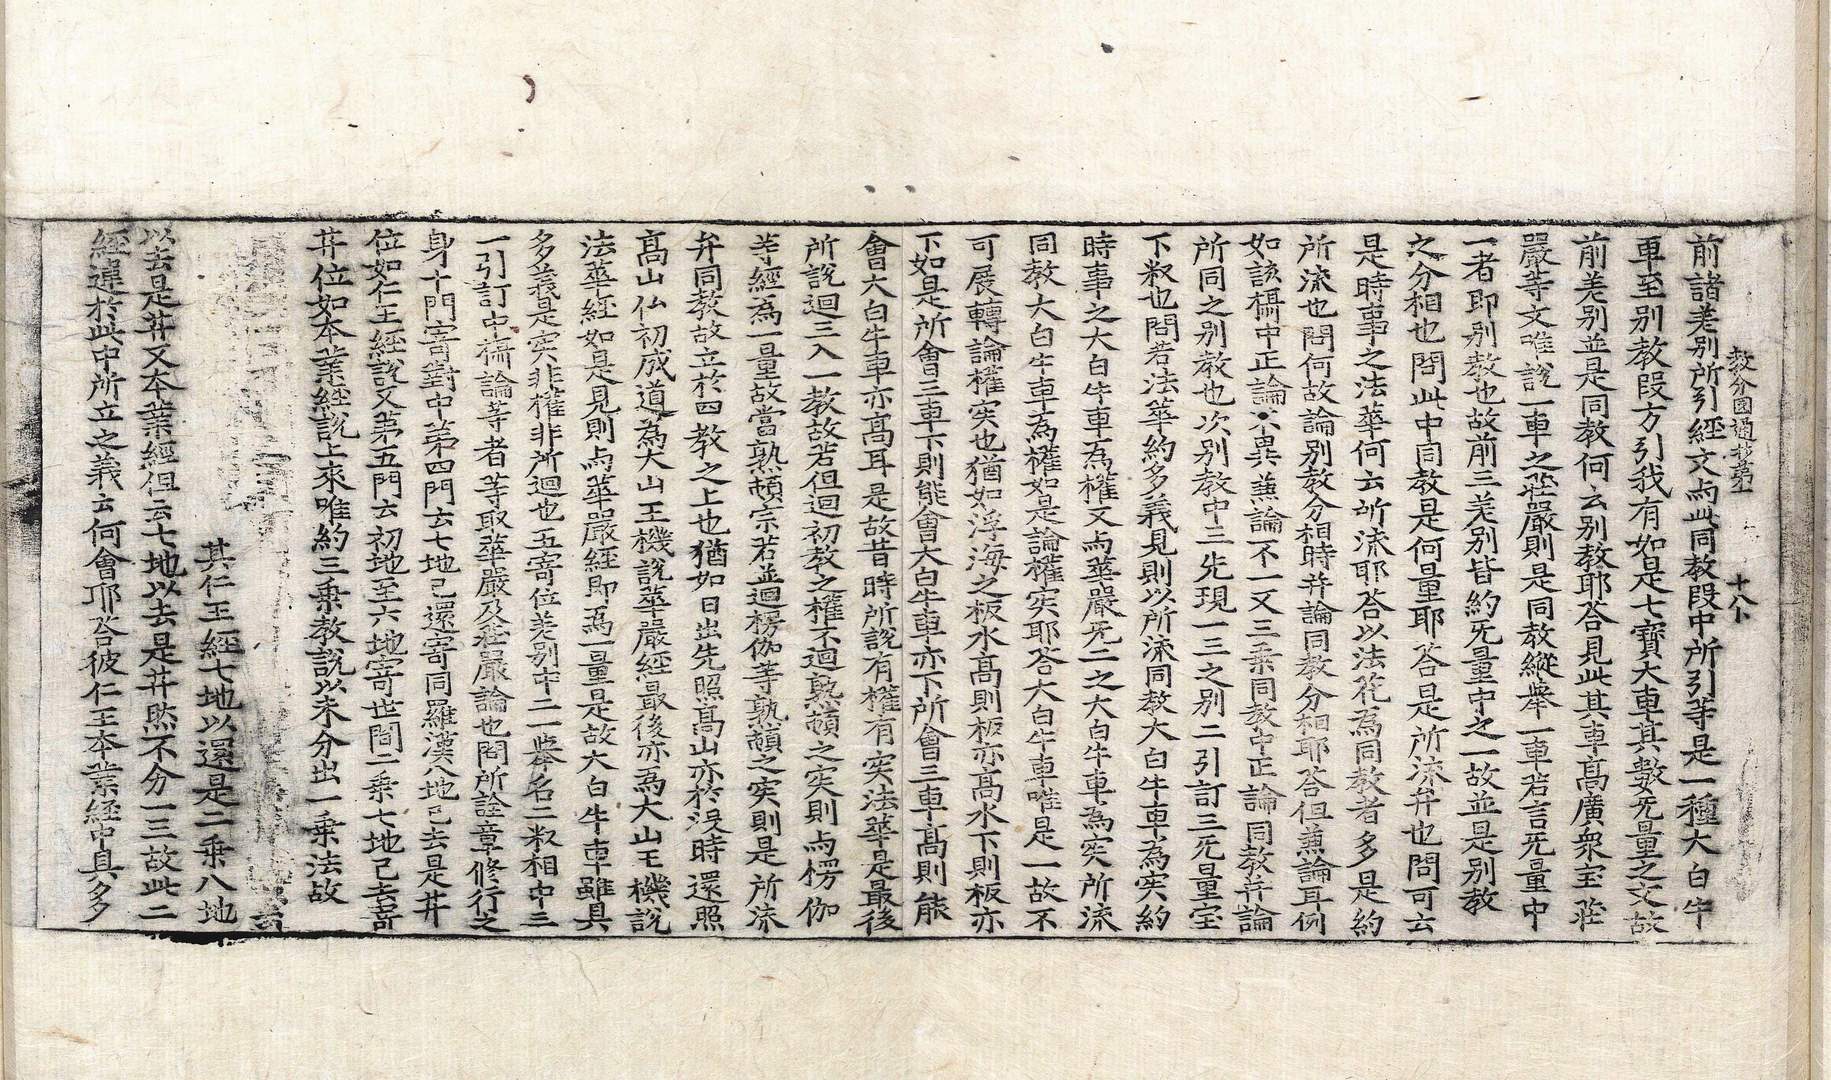 教分圓通抄第一 十八卜
前諸差別所引經文与此同敎段中所引等是一種大白牛
車至別敎段方引我有如是七寶大車其數无量之文故
前差別並是同敎何云別敎耶答見此其車高廣衆宝莊
嚴等文唯說一車之莊嚴則是同敎縱舉一車若言无量中
一者即別敎也故前三差別皆約无量中之一故並是別敎
之分相也問此中同敎是何量耶答是所流弁也問可云
是時事之法華何云所流耶答以法花為同敎者多是約
所流也問何故論別敎分相時弁論同敎分相耶答但兼論耳例
如該攝中正論不異兼論不一又三乘同敎中正論同敎弁論
所同之別敎也次別敎中二先現一三之別二引訂三无量宝
下粎也問若法華約多義見則以所流同敎大白牛車為实約
時事之大白牛車為權又与華嚴无二之大白牛車為实所流
同敎大白牛車為權如是論權实耶答大白牛車唯是一故不
可展轉論權实也猶如浮海之板水高則板亦高水下則板亦
下如是所會三車下則能會大白牛車亦下所會三車高則能
會大白牛車亦高耳是故昔時所說有權有实法華是最後
所說迴三入一敎故若但迴初敎之權不迴熟頓之实則与楞伽
等經為一量故當熟頓宗若並迴楞伽等熟頓之实則是所流
弁同敎故立於四敎之上也猶如日出先照高山亦於没時還照
高山仏初成道為大山王機說華嚴經最後亦為大山王機說
法華經如是見則与華嚴經即為一量是故大白牛車雖具
多義是实非權非所迴也五寄位差別中二一舉名二粎相中三
一引訂中攝論等者等取華嚴及莊嚴論也問所詮章修行之
身十門寄對中第四門云七地已還寄同羅漢八地已去是菩
位如仁王經說又第五門云初地至六地寄世間二乘七地已去寄
菩位如本業經說上來唯約三乘敎說以未分出一乘法故
其仁王經七地以還是二乘八地
以去是菩又本業經但云七地以去是菩然不分一三故此二
經違於此中所立之義云何會耶答彼仁王本業經中具多